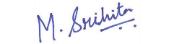 M. Srihita